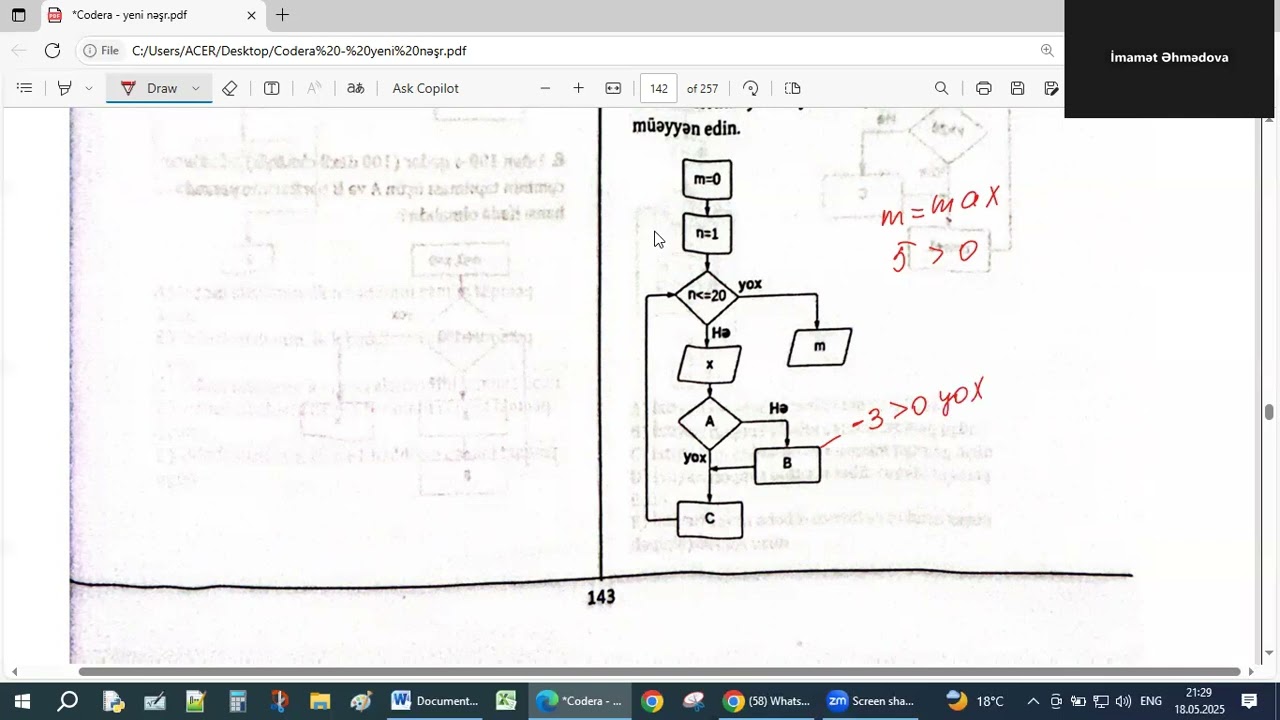 *Codera - yeni nəşr.pdf
File
C:/Users/ACER/Desktop/Codera%20-%20yeni%20nəşr.pdf
İmamət Əhmədova
Draw
Ask Copilot
142 of 257
müəyyən edin.
m=0
n=1
n<=20
yox
Hə
m
x
A
Hə
yox
B
C
m = max
5 > 0
-3 > 0 yox
143
Document...
*Codera - ...
(58) Whats...
Screen sha...
18°C
ENG
21:29
18.05.2025